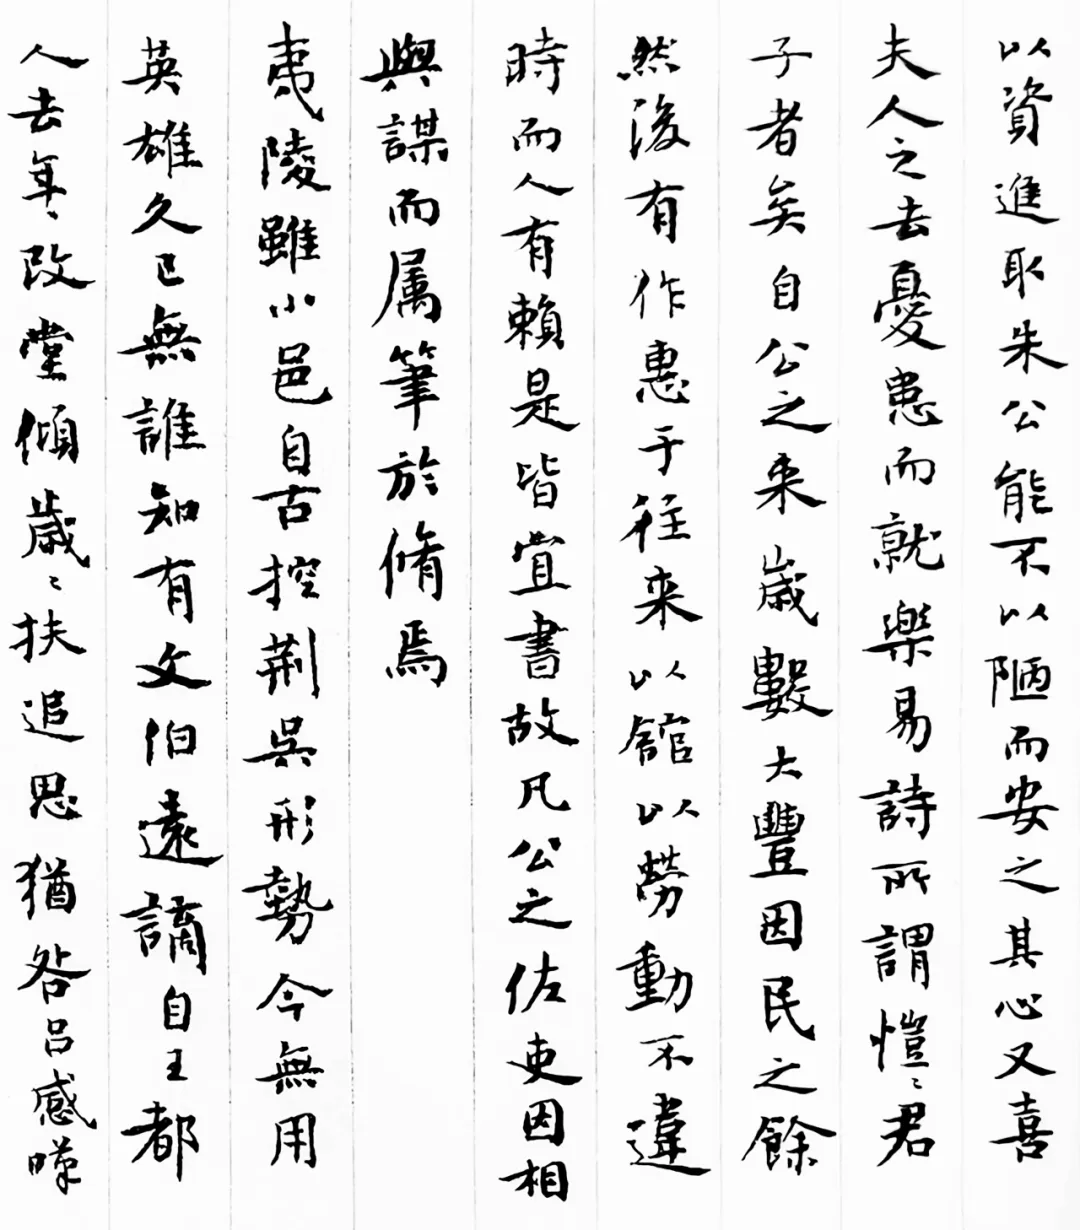 以資進取朱公能不以陋而安之其心又喜
夫人之去憂患而就樂易詩所謂愷〻君
子者矣自公之来歲數大豐因民之餘
然後有作惠于往来以館以勞動不違
時而人有賴是皆宜書故凡公之佐吏因相
與謀而属筆於脩焉
夷陵雖小邑自古控荆吳形勢今無用
英雄久已無誰知有文伯遠謫自王都
人去年〻改堂傾歲〻扶追思猶咎呂感嘆